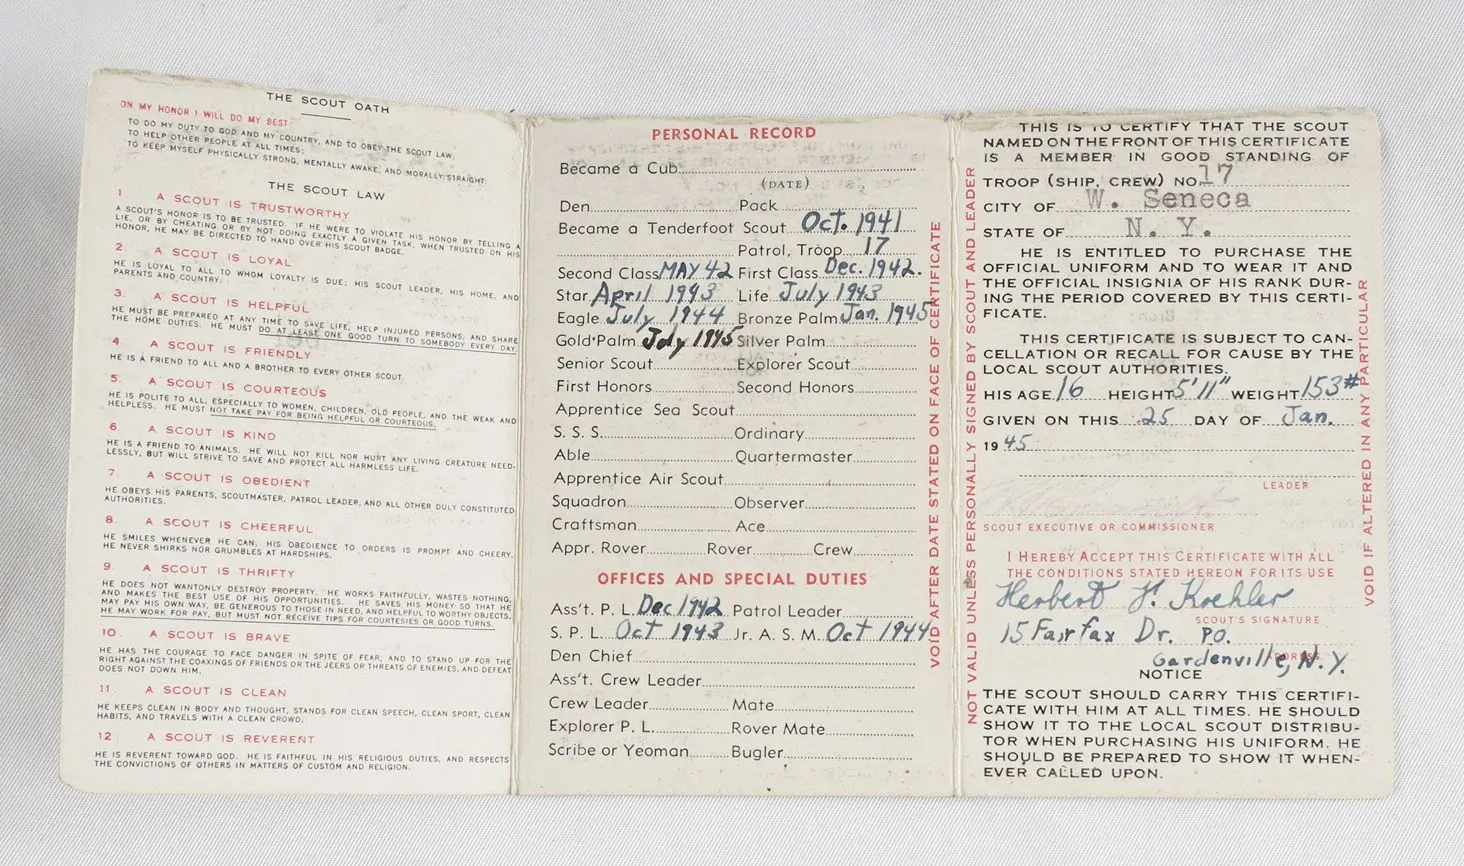 THE SCOUT OATH
ON MY HONOR I WILL DO MY BEST
TO DO MY DUTY TO GOD AND MY COUNTRY, AND TO OBEY THE SCOUT LAW;
TO HELP OTHER PEOPLE AT ALL TIMES;
TO KEEP MYSELF PHYSICALLY STRONG, MENTALLY AWAKE, AND MORALLY STRAIGHT.
THE SCOUT LAW
1. A SCOUT IS TRUSTWORTHY
A SCOUT'S HONOR IS TO BE TRUSTED. IF HE WERE TO VIOLATE HIS HONOR BY TELLING A
LIE, OR BY CHEATING OR BY NOT DOING EXACTLY A GIVEN TASK, WHEN TRUSTED ON HIS
HONOR, HE MAY BE DIRECTED TO HAND OVER HIS SCOUT BADGE.
2. A SCOUT IS LOYAL
HE IS LOYAL TO ALL TO WHOM LOYALTY IS DUE; HIS SCOUT LEADER, HIS HOME, AND
PARENTS AND COUNTRY.
3. A SCOUT IS HELPFUL
HE MUST BE PREPARED AT ANY TIME TO SAVE LIFE, HELP INJURED PERSONS, AND SHARE
THE HOME DUTIES. HE MUST DO AT LEAST ONE GOOD TURN TO SOMEBODY EVERY DAY.
4. A SCOUT IS FRIENDLY
HE IS A FRIEND TO ALL AND A BROTHER TO EVERY OTHER SCOUT.
5. A SCOUT IS COURTEOUS
HE IS POLITE TO ALL, ESPECIALLY TO WOMEN, CHILDREN, OLD PEOPLE, AND THE WEAK AND
HELPLESS. HE MUST NOT TAKE PAY FOR BEING HELPFUL OR COURTEOUS.
6. A SCOUT IS KIND
HE IS A FRIEND TO ANIMALS. HE WILL NOT KILL NOR HURT ANY LIVING CREATURE NEED-
LESSLY, BUT WILL STRIVE TO SAVE AND PROTECT ALL HARMLESS LIFE.
7. A SCOUT IS OBEDIENT
HE OBEYS HIS PARENTS, SCOUTMASTER, PATROL LEADER, AND ALL OTHER DULY CONSTITUTED
AUTHORITIES.
8. A SCOUT IS CHEERFUL
HE SMILES WHENEVER HE CAN. HIS OBEDIENCE TO ORDERS IS PROMPT AND CHEERY.
HE NEVER SHIRKS NOR GRUMBLES AT HARDSHIPS.
9. A SCOUT IS THRIFTY
HE DOES NOT WANTONLY DESTROY PROPERTY. HE WORKS FAITHFULLY, WASTES NOTHING,
AND MAKES THE BEST USE OF HIS OPPORTUNITIES. HE SAVES HIS MONEY SO THAT HE
MAY PAY HIS OWN WAY, BE GENEROUS TO THOSE IN NEED, AND HELPFUL TO WORTHY OBJECTS.
HE MAY WORK FOR PAY, BUT MUST NOT RECEIVE TIPS FOR COURTESIES OR GOOD TURNS.
10. A SCOUT IS BRAVE
HE HAS THE COURAGE TO FACE DANGER IN SPITE OF FEAR, AND TO STAND UP FOR THE
RIGHT AGAINST THE COAXINGS OF FRIENDS OR THE JEERS OR THREATS OF ENEMIES, AND DEFEAT
DOES NOT DOWN HIM.
11. A SCOUT IS CLEAN
HE KEEPS CLEAN IN BODY AND THOUGHT, STANDS FOR CLEAN SPEECH, CLEAN SPORT, CLEAN
HABITS, AND TRAVELS WITH A CLEAN CROWD.
12. A SCOUT IS REVERENT
HE IS REVERENT TOWARD GOD. HE IS FAITHFUL IN HIS RELIGIOUS DUTIES, AND RESPECTS
THE CONVICTIONS OF OTHERS IN MATTERS OF CUSTOM AND RELIGION.
PERSONAL RECORD
Became a Cub
(DATE)
Den Pack
Became a Tenderfoot Scout Oct. 1941
Patrol, Troop 17
Second Class MAY 42 First Class Dec. 1942.
Star April 1943 Life July 1943
Eagle July 1944 Bronze Palm Jan. 1945
Gold Palm July 1945 Silver Palm
Senior Scout Explorer Scout
First Honors Second Honors
Apprentice Sea Scout
S. S. S. Ordinary
Able Quartermaster
Apprentice Air Scout
Squadron Observer
Craftsman Ace
Appr. Rover Rover Crew
OFFICES AND SPECIAL DUTIES
Ass't. P. L. Dec 1942 Patrol Leader
S. P. L. Oct 1943 Jr. A. S. M. Oct 1944
Den Chief
Ass't. Crew Leader
Crew Leader Mate
Explorer P. L. Rover Mate
Scribe or Yeoman Bugler
VOID AFTER DATE STATED ON FACE OF CERTIFICATE
NOT VALID UNLESS PERSONALLY SIGNED BY SCOUT AND LEADER
THIS IS TO CERTIFY THAT THE SCOUT
NAMED ON THE FRONT OF THIS CERTIFICATE
IS A MEMBER IN GOOD STANDING OF
TROOP (SHIP, CREW) NO. 17
CITY OF W. Seneca
STATE OF N. Y.
HE IS ENTITLED TO PURCHASE THE
OFFICIAL UNIFORM AND TO WEAR IT AND
THE OFFICIAL INSIGNIA OF HIS RANK DUR-
ING THE PERIOD COVERED BY THIS CERTI-
FICATE.
THIS CERTIFICATE IS SUBJECT TO CAN-
CELLATION OR RECALL FOR CAUSE BY THE
LOCAL SCOUT AUTHORITIES.
HIS AGE 16 HEIGHT 5'11" WEIGHT 153#
GIVEN ON THIS 25 DAY OF Jan.
19 45
LEADER
SCOUT EXECUTIVE OR COMMISSIONER
I HEREBY ACCEPT THIS CERTIFICATE WITH ALL
THE CONDITIONS STATED HEREON FOR ITS USE
Herbert F. Koehler
SCOUT'S SIGNATURE
15 Fairfax Dr. P.O.
Gardenville, N.Y.
NOTICE
THE SCOUT SHOULD CARRY THIS CERTIFI-
CATE WITH HIM AT ALL TIMES. HE SHOULD
SHOW IT TO THE LOCAL SCOUT DISTRIBU-
TOR WHEN PURCHASING HIS UNIFORM. HE
SHOULD BE PREPARED TO SHOW IT WHEN-
EVER CALLED UPON.
VOID IF ALTERED IN ANY PARTICULAR